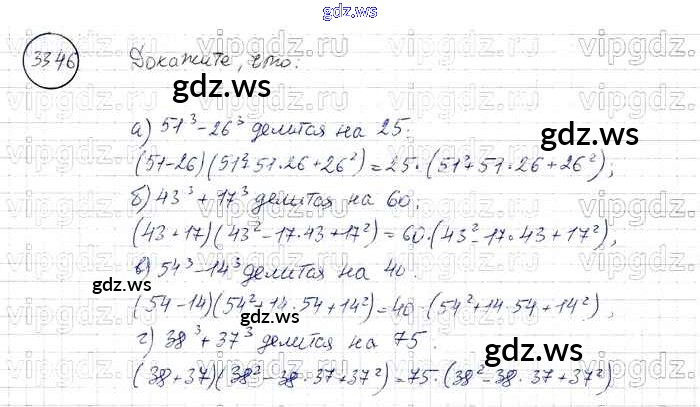 gdz.ws
33.46 Докажите, что:
gdz.ws
а) 51³-26³ делится на 25:
gdz.ws
(51-26)(51²+51·26+26²)=25·(51²+51·26+26²),
б) 43³+17³ делится на 60.
gdz.ws
(43+17)(43²-17·43+17²)=60·(43²-17·43+17²),
в) 54³-14³ делится на 40.
gdz.ws
(54-14)(54²+14·54+14²)=40·(54²+14·54+14²),
gdz.ws
г) 38³+37³ делится на 75.
gdz.ws
(38+37)(38²-38·37+37²)=75·(38²-38·37+37²)
gdz.ws